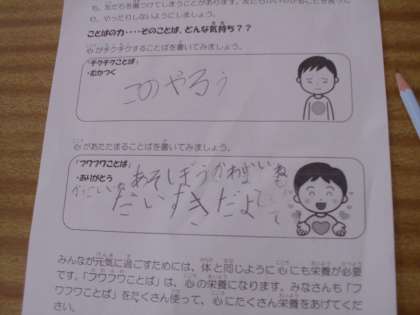 も、友だちを傷つけてしまうことがあります。
も、やったりしないようにしましょう。
ことばの力・・・・そのことば、どんな気持ち？？
心がチクチクすることばを書いてみましょう。
「チクチクことば」
・むかつく
このやろう
心があたたまることばを書いてみましょう。
「フワフワことば」
・ありがとう
あそしぼう かわいいね
だいすきだよ
みんなが元気に過ごすためには、体と同じように心にも栄養が必要
です。「フワフワことば」は、心の栄養になります。みなさんも「フ
ワフワことば」をたくさん使って、心にたくさん栄養をあげてくだ
さい。